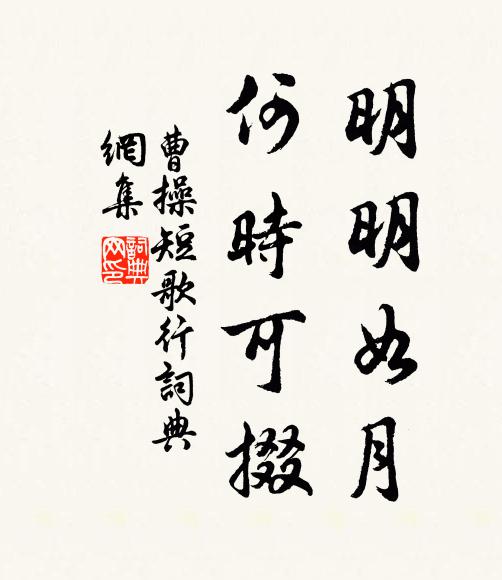 明明如月
何時可掇
曹操短歌行詞典
網集
詞典网印